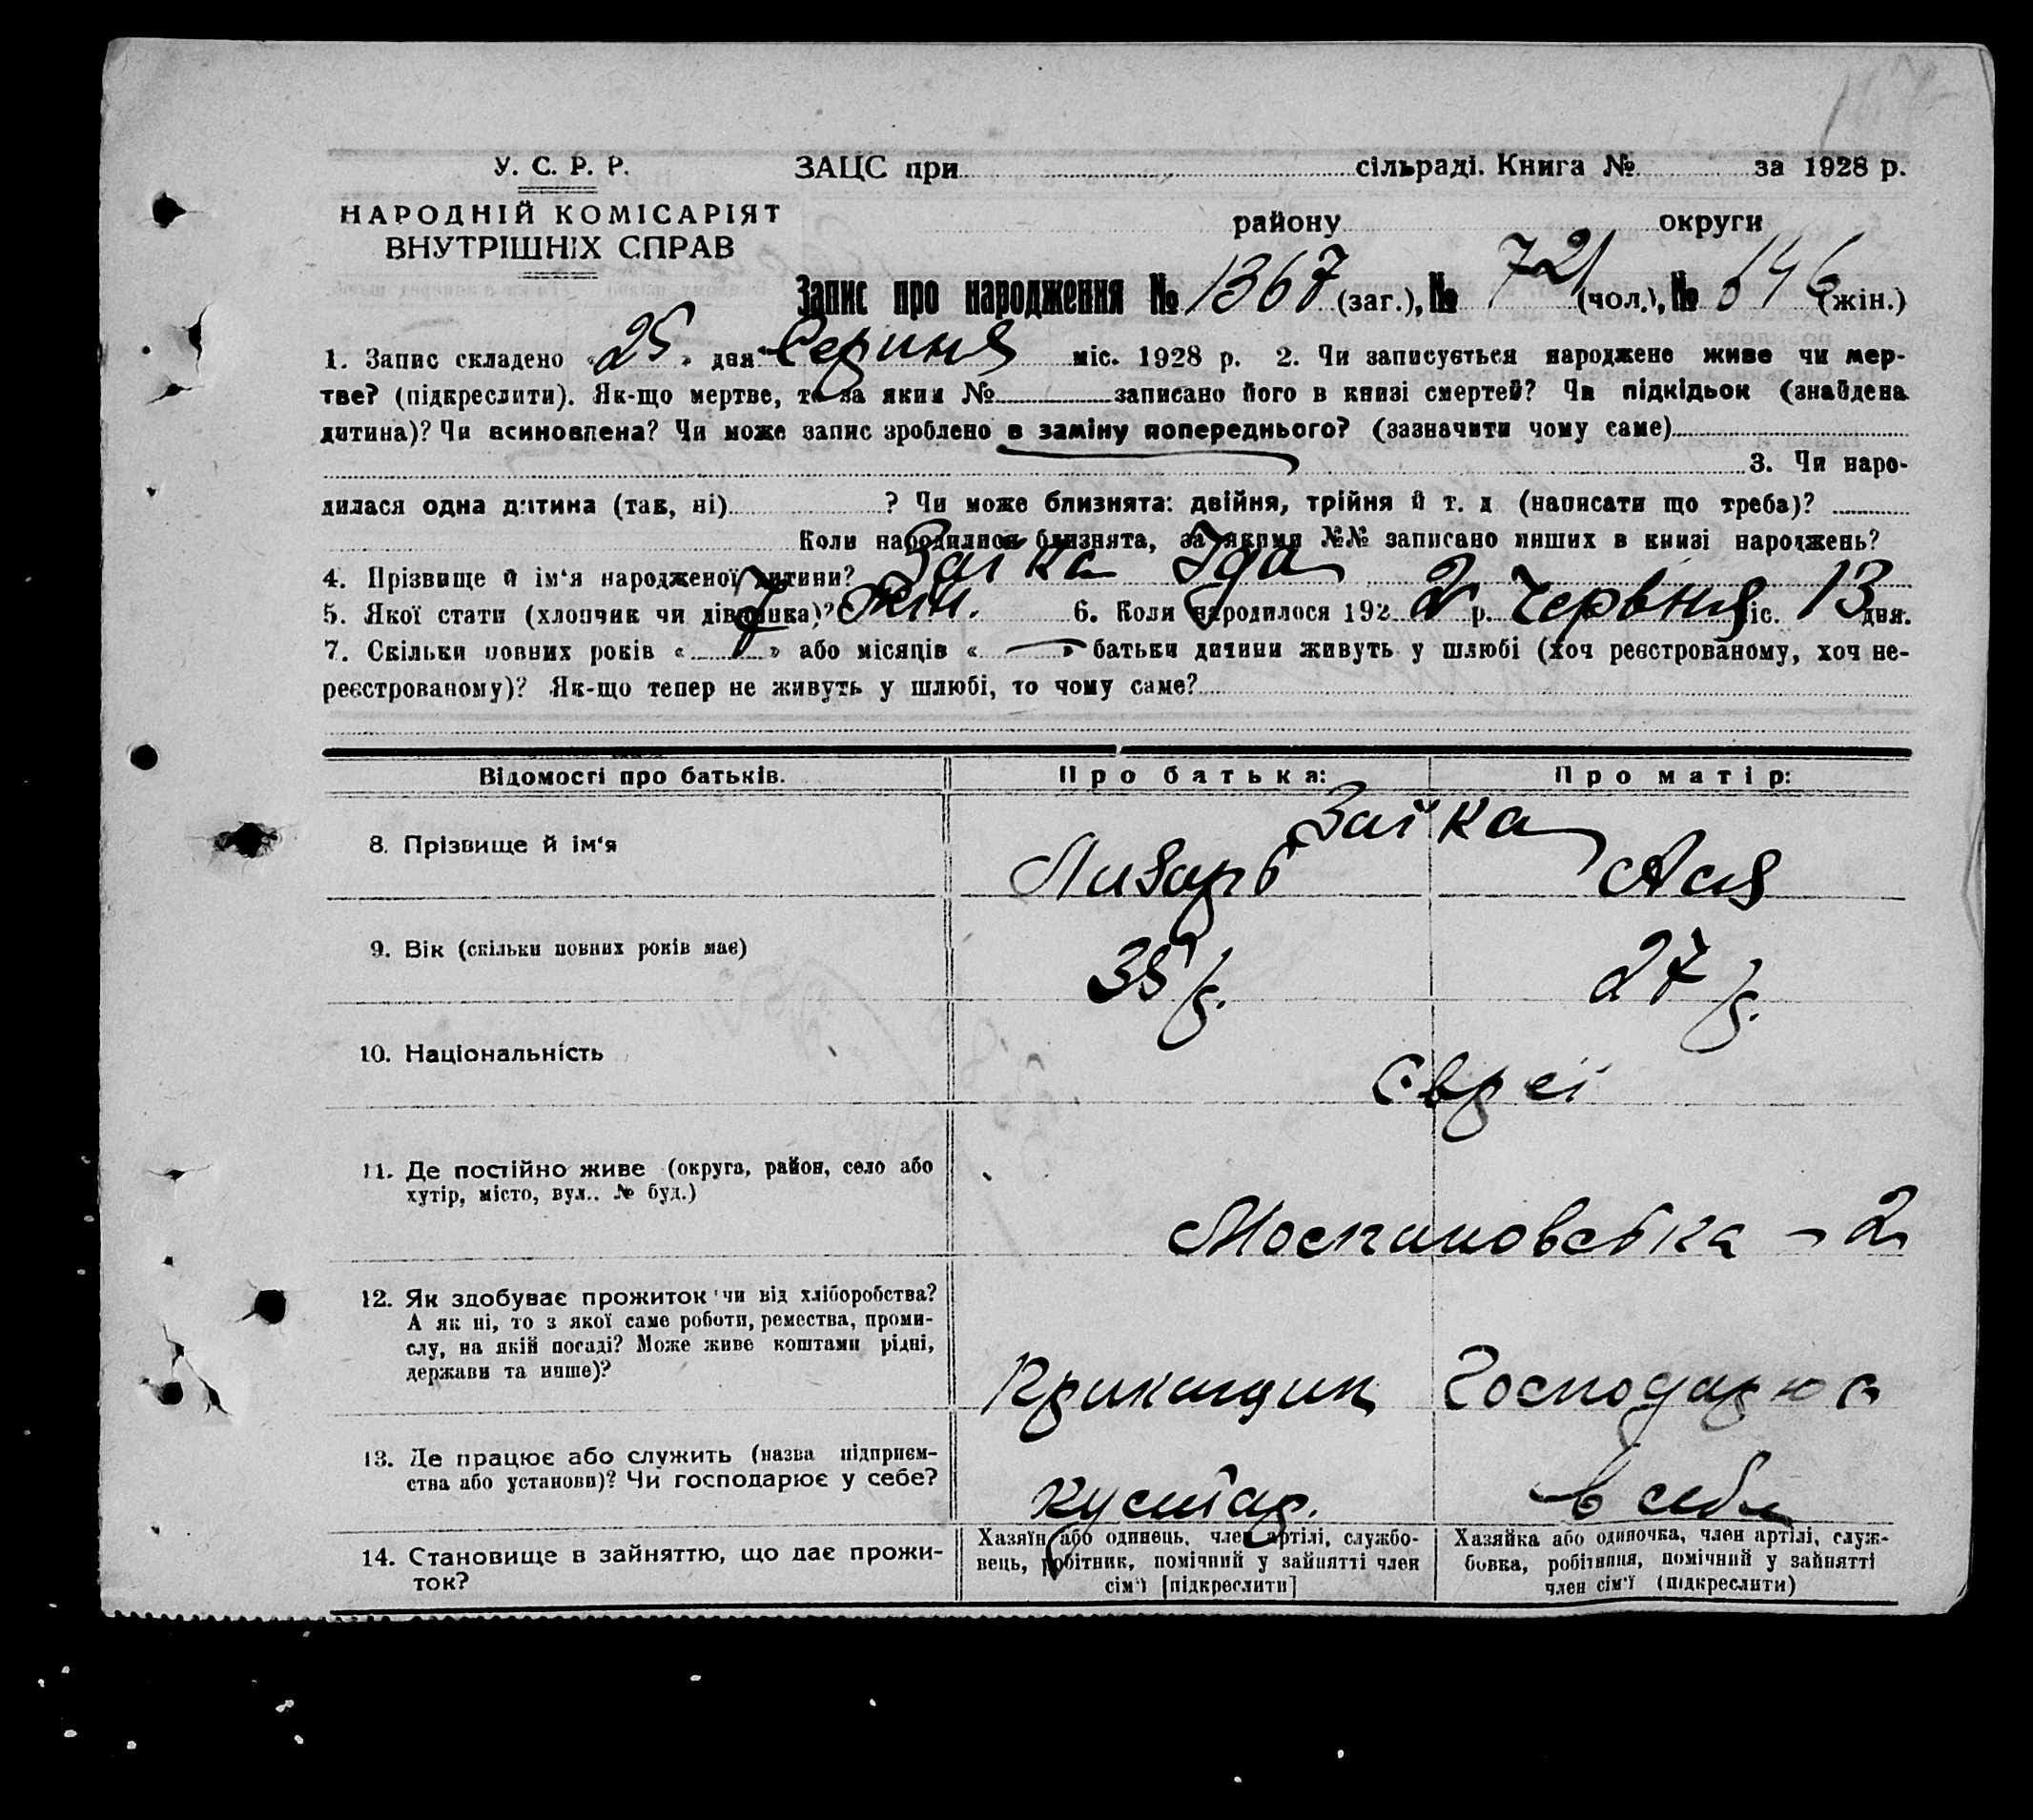 У. С. Р. Р.
ЗАЦС при сільраді. Книга № за 1928 р.
НАРОДНІЙ КОМІСАРІЯТ
ВНУТРІШНІХ СПРАВ
району округи
Запис про народження № 1367 (заг.), № 721 (чол.), № 646 (жін.)
1. Запис складено «25» дня Серпня міс. 1928 р. 2. Чи записується народжене живе чи мер-
тве? (підкреслити). Як-що мертве, то за яким № записано його в книзі смертей? Чи підкідьок (знайдена
дитина)? Чи всиновлена? Чи може запис зроблено в заміну попереднього? (зазначити чому саме)
3. Чи наро-
дилася одна дитина (так, ні) ? Чи може близнята: двійня, трійня й т. д (написати що треба)?
Коли народилися близнята, за якими №№ записано инших в книзі народжень?
4. Прізвище й ім'я народженої дитини? Заїка Іда
5. Якої стати (хлопчик чи дівчинка)? жін. 6. Коли народилося 192 2 р. Червня міс. 13 дня.
7. Скільки повних років «7» або місяців «—» батьки дитини живуть у шлюбі (хоч реєстрованому, хоч не-
реєстрованому)? Як-що тепер не живуть у шлюбі, то чому саме?
Відомості про батьків. Про батька: Про матір:
Заїка
8. Прізвище й ім‘я Лизарь Ася
9. Вік (скільки повних років має) 35 р. 27 р.
10. Національність євреї
11. Де постійно живе (округа, район, село або
хутір, місто, вул.. № буд.)
- 2
12. Як здобуває прожиток чи від хліборобства?
А як ні, то з якої саме роботи, ремества, проми-
слу, на якій посаді? Може живе коштами рідні,
держави та инше)?
Прикащик Господарює
13. Де працює або служить (назва підприєм-
ства або установи)? Чи господарює у себе?
кустар. в себе
14. Становище в зайняттю, що дає прожи-
ток?
Хазяїн або одинець, член артілі, службо-
вець, робітник, помічний у зайнятті член
сім'ї [підкреслити]
Хазяйка або одиночка, член артілі, служ-
бовка, робітниця, помічний у зайнятті
член сім'ї (підкреслити)